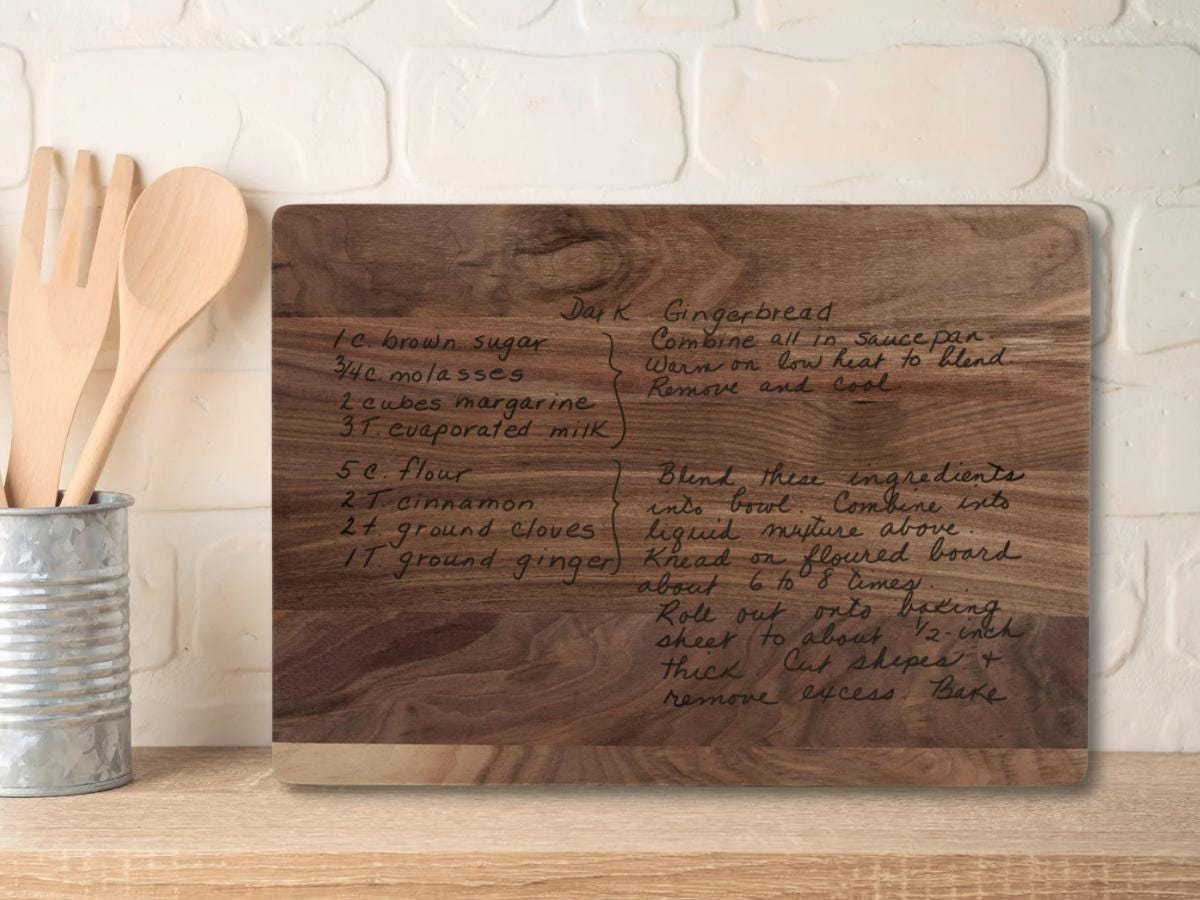 Dark Gingerbread
1 c. brown sugar
3/4 c. molasses
2 cubes margarine
3 T. evaporated milk
Combine all in saucepan.
Warm on low heat to blend.
Remove and cool.
5 c. flour
2 T. cinnamon
2 t. ground cloves
1 T. ground ginger
Blend these ingredients
into bowl. Combine into
liquid mixture above.
Knead on floured board
about 6 to 8 times.
Roll out onto baking
sheet to about 1/2-inch
thick. Cut shapes +
remove excess. Bake